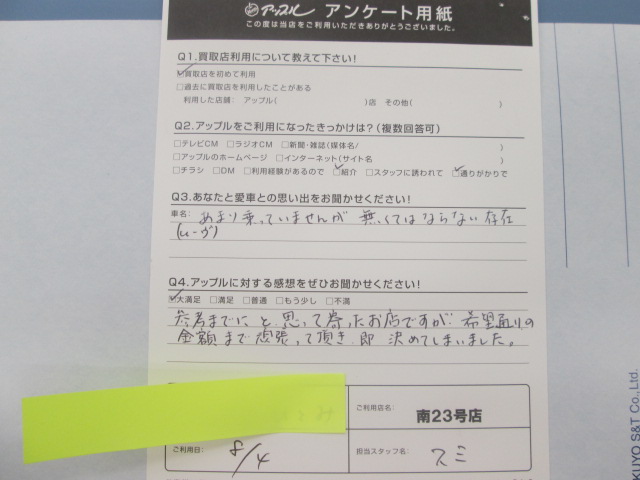 アップル アンケート用紙
この度は当店をご利用いただきありがとうございました。
Q1.買取店利用について教えて下さい!
☑買取店を初めて利用
□過去に買取店を利用したことがある
利用した店舗: アップル( )店 その他( )
Q2.アップルをご利用になったきっかけは?(複数回答可)
□テレビCM □ラジオCM □新聞・雑誌(媒体名/ )
□アップルのホームページ □インターネット(サイト名 )
□チラシ □DM □利用経験があるので ☑紹介 □スタッフに誘われて ☑通りがかりで
Q3.あなたと愛車との思い出をお聞かせください!
車名: あまり乗っていませんが 無くてはならない存在
(ムーヴ)
Q4.アップルに対する感想をぜひお聞かせください!
☑大満足 □満足 □普通 □もう少し □不満
参考までに と思って寄ったお店ですが 希望通りの
金額まで頑張って頂き 即 決めてしまいました。
ご利用店名: 南23号店
ご利用日: 8/4 担当スタッフ名: スミ
KUYO S&T Co., Ltd.